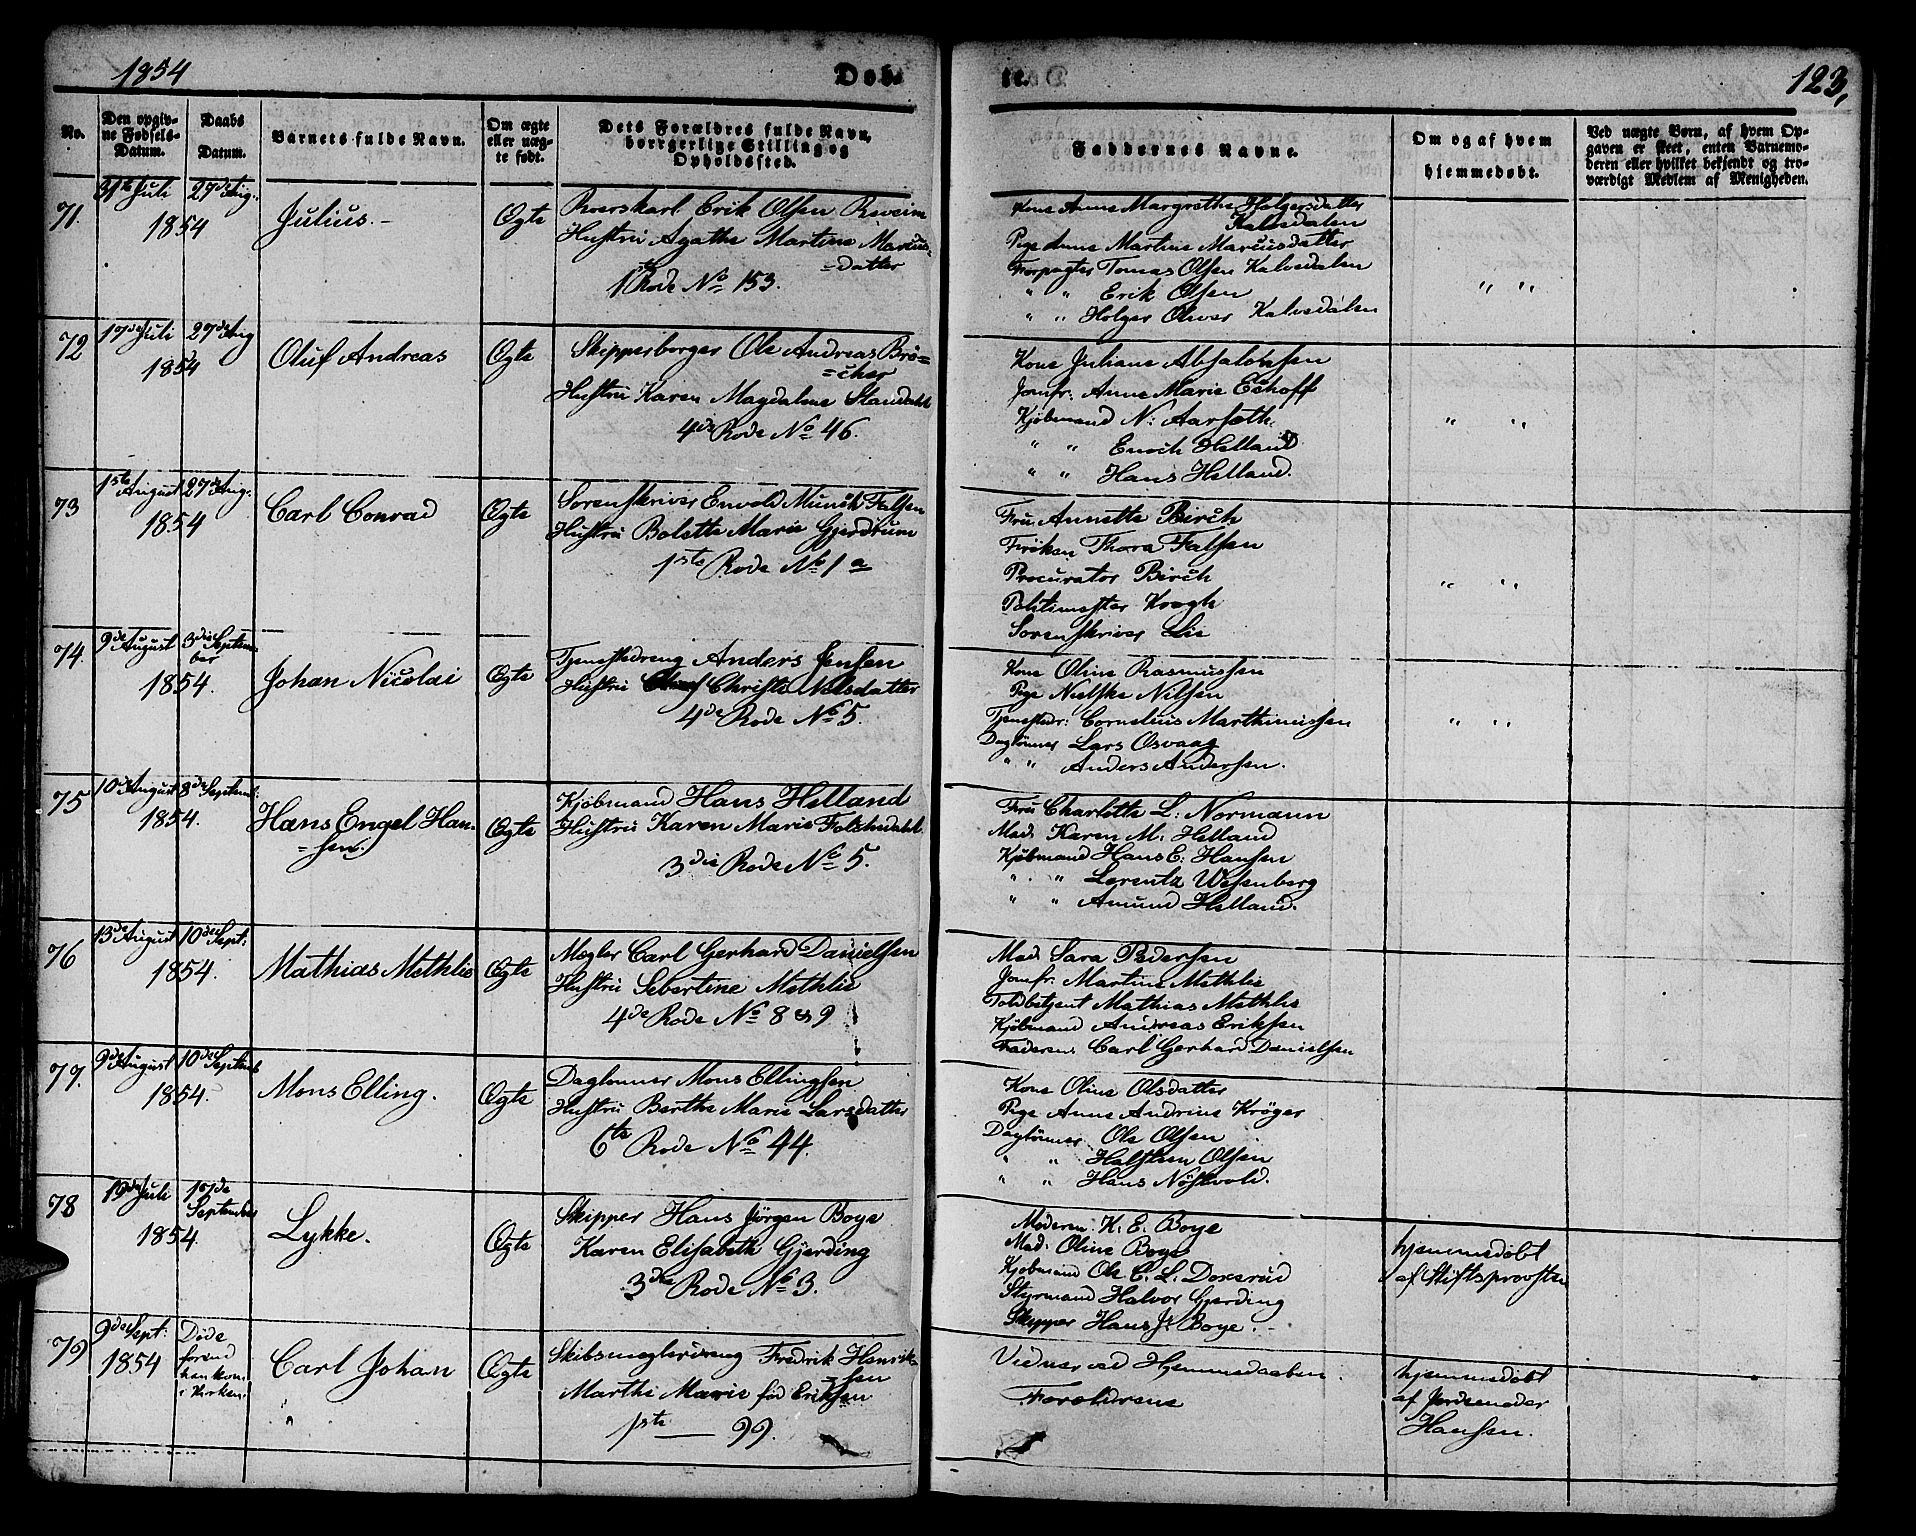 1854
Døb-
te.
123,
No.
Den opgiv-
ne Fødsels-
Datum.
Daabs
Datum.
Barnets fulde Navn.
Om ægte
eller uæg-
te født.
Dets Forældres fulde Navn,
borgerlige Stilling og
Opholdssted.
Faddernes Navne.
Om og af hvem
hjemmedøbt.
Ved uægte Børn, af hvem Op-
gaven er skeet, enten Barnemo-
deren eller hvilket bekjendt og tro-
værdigt Medlem af Menigheden.
71.
31te Juli
1854
27de Aug:
Julius.-
Ægte
Erik Olsen
Hustru Agathe Martine Marcus-
=datter
1ste Rode No 153.
Kone Anne Margrethe Holgersdatter
Kalvedalen
Pige Anne Martine Marcusdatter
Forpagter Tomas Olsen Kalvedalen
" " Erik Olsen
" " Holger Oliver Kalvedalen
" "
72
17de Juli
1854
27de Aug
Oluf Andreas
Ægte
Skipperborger Ole Andreas Brö=
=cher
Hustru Karen Magdalene Standahl
4de Rode No 46.
Kone Juliane Absalonsen
Jomfr. Anne Marie Eshoff
Kjøbmand N: Aarsæth.
" " Enoch Helland
" " Hans Helland.
" "
73
1ste August
1854
27de Aug:
Carl Conrad
Ægte
Sorenskriver Envold Munch Falsen
Hustru Bolette Marie Gjerdrum
1ste Rode No 1 a
Fru Annette Birch
Frøken Thora Falsen
Procurator Birch
Politimester Krogh
Sorenskriver Lie
" "
74.
9de August
1854.
3die Septem-
ber
Johan Nicolai
Ægte
Tjenestedreng Anders Jensen
Hustru Christe Nelsdatter
4de Rode No 5.
Kone Oline Rasmussen
Pige Nielske Nilsen
Tjenestedr: Cornelius Marthinussen
Daglönner Lars Osvaag
" " Anders Andersen.
" "
75
10de August
1854.
8de Septemb:
Hans Engel Han-
=sen.
Ægte
Kjøbmand Hans Helland
Hustru Karen Marie
3die Rode No 5.
Fru Charlotte L: Normann
Mad: Karen M: Helland
Kjøbmand Hans E: Hansen
" " Lorentz Wesenberg
" " Amund Helland.
76
13de August
1854.
10de Sept:
Mathias Methlie
Ægte
Mægler Carl Gerhard Danielsen
Hustru Sebertine Methlie
4de Rode No 8 & 9
Mad. Sara Pedersen
Jomfr. Martine Methlie
Toldbetjent Mathias Methlie
Kjøbmand Andreas Eriksen
Faderen: Carl Gerhard Danielsen
77.
9de August
1854.
10de Septemb
Mons Elling.
Ægte
Daglønner Mons Ellingsen
Hustru Berthe Marie Larsdatter
6te Rode No 44.
Kone Oline Olsdatter
Pige Anne Andrine Kröger
Daglönner Ole Olsen
" " Halsten Olsen
" " Hans Nöstvold.
78
19de Juli
1854.
17de
September
Lykke.
Ægte
Skipper Hans Jørgen Boye
Karen Elisabeth Gjerding
3die Rode No 3.
Moderen: K. E. Boye
Mad: Oline Boye
Kjøbmand Ole C. L. Dorsrud
Styrmand Halvor Gjerding
Skipper Hans J. Boye.
hjemmedøbt
af Stiftsprovsten
79
9de Sept:
1854
Døde
forend
han kom
i Kirken.
Carl Johan
"
Ægte
Skibsmæglerdreng Fredrik Henrik-
=sen
Marthe Marie fød Eriksen
1ste — 99.
Vidner ved Hjemmedaaben.
Forældrene
hjemmedøbt
af Jordemoder
Hansen.